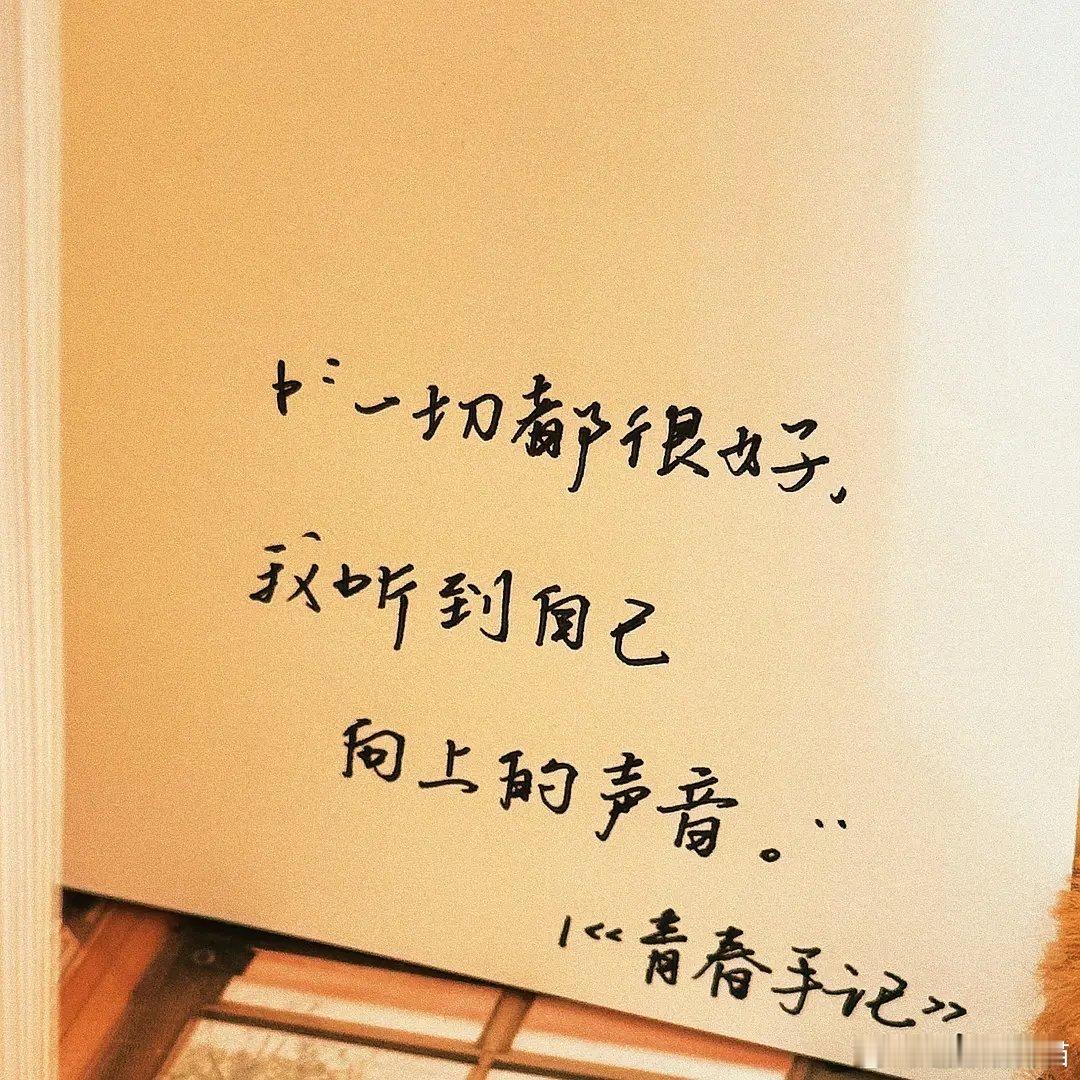 “一切都很好,
我听到自己
向上的声音。”
《青春手记》